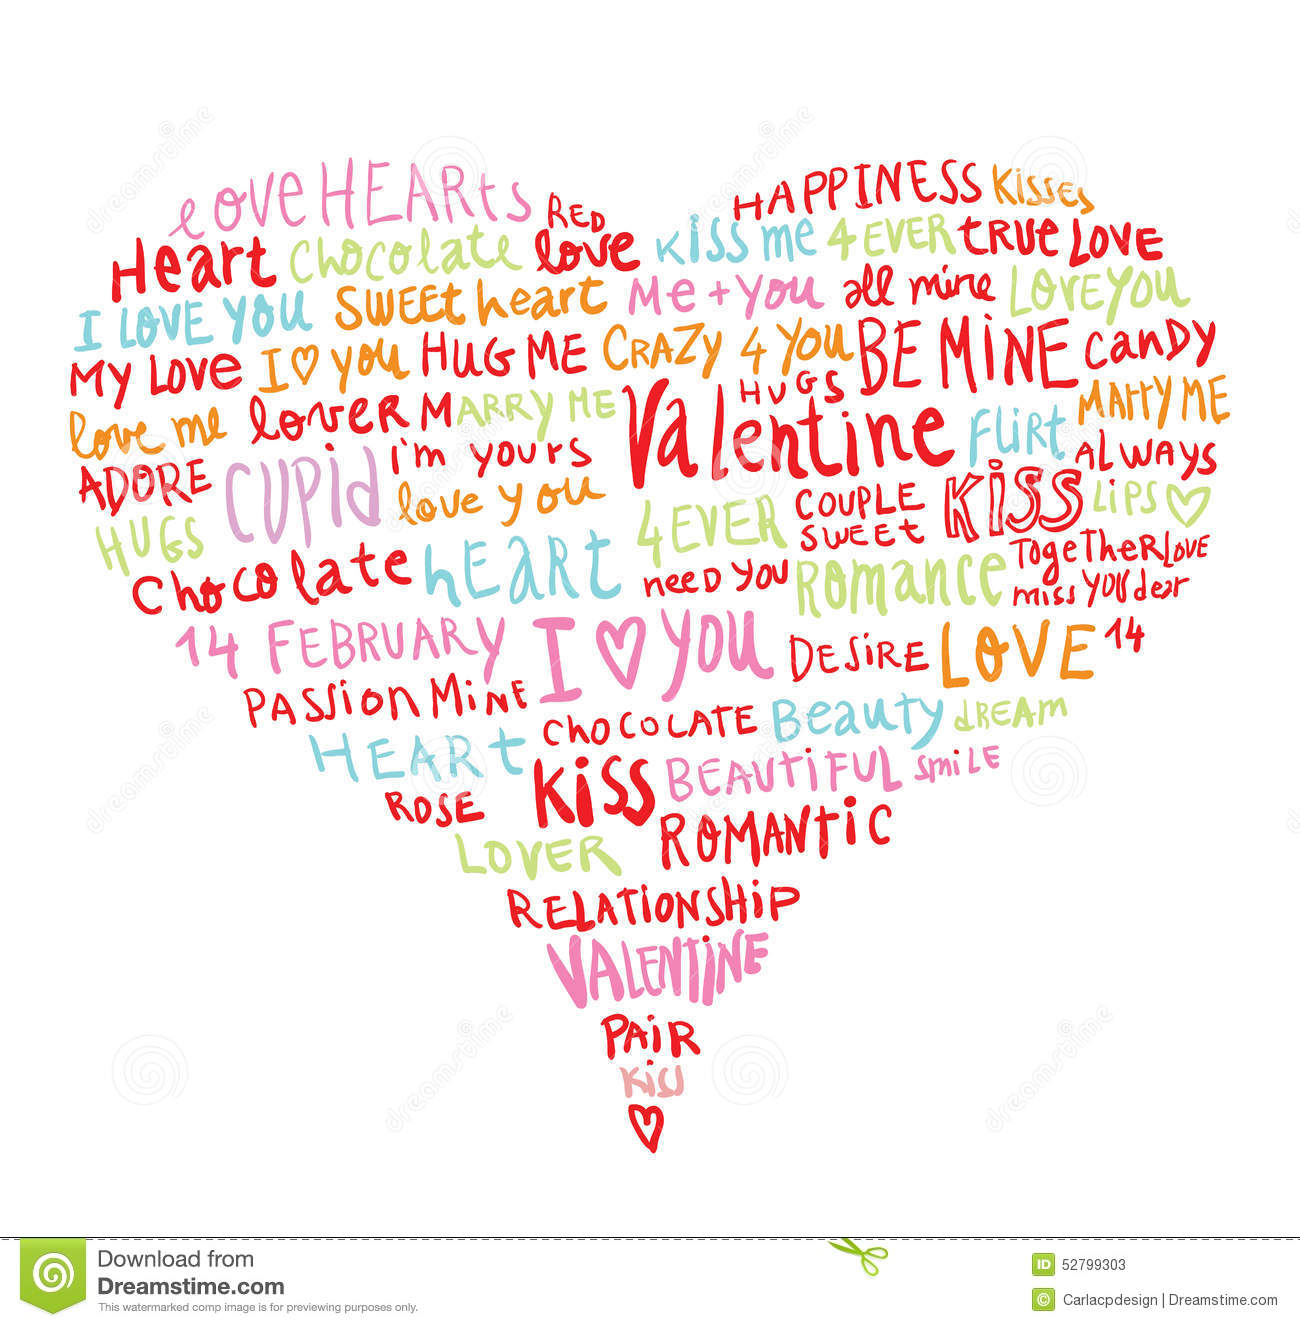 love HEARts RED HAPPINESS Kisses
Heart chocolate love kiss me 4 EVER tRUe LOVE
I LOVE YOU SWEEt heart Me + you all mine LOVE you
MY LOVE I ♡ you HUG ME CRAZY 4 YOU BE MINE CANDY
love me lover MARRY ME Valentine HUGS FLiRt MARRY ME
ADORE CUPid i'm yours ALWAYS
love you COUPLE KiSS LiPS ♡
HUGS 4 EVER SWEEt
chocolate hEARt need you Romance TogeTheR LOVE
miss YOU dear
14 FEBRUARY I ♡ YOU DESiRE LOVE 14
PASSiON MiNE CHOCOLATE Beauty dREAM
HEARt KiSS BEAUTiFUL SmiLE
ROSE ROMANtiC
LOVER
RELATiONSHiP
VALENTINE
PAiR
Kiss
♡
Download from
Dreamstime.com
This watermarked comp image is for previewing purposes only.
ID 52799303
© Carlacpdesign | Dreamstime.com